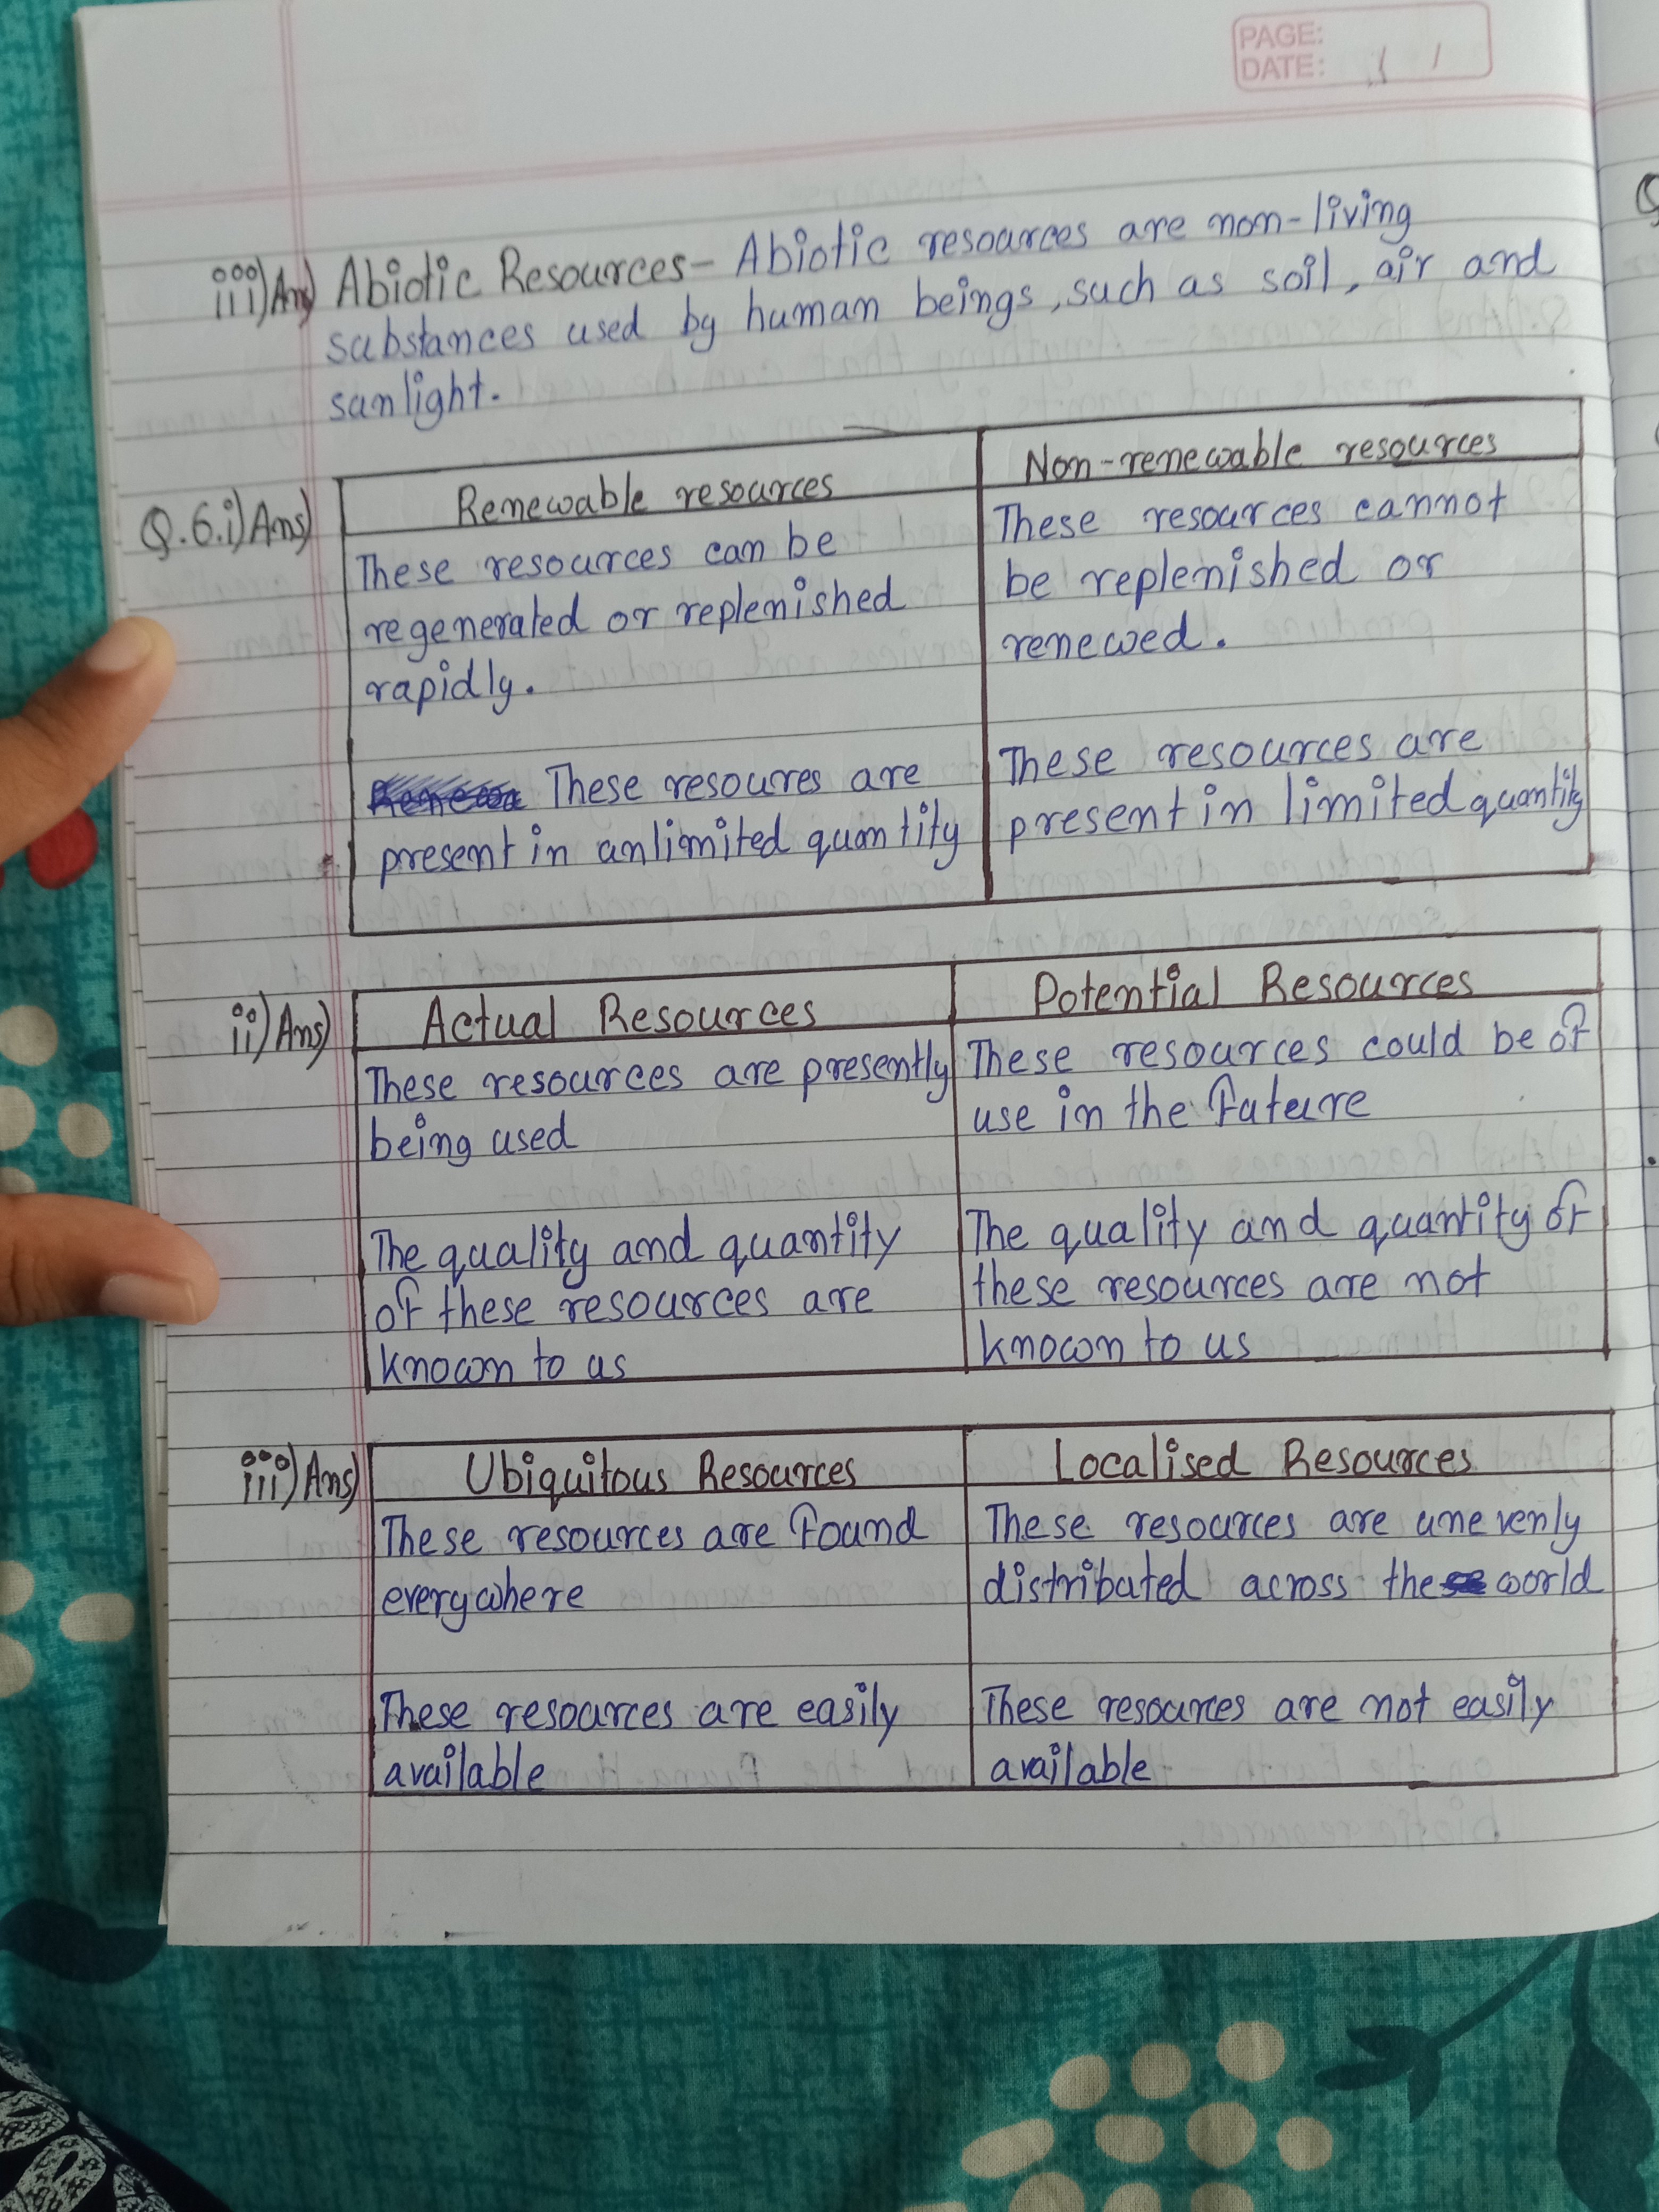 PAGE:
DATE: / /
iii) Ans) Abiotic Resources - Abiotic resources are non-living
substances used by human beings, such as soil, air and
sunlight.
Q.6.i) Ans)
Renewable resources
Non-renewable resources
These resources can be
regenerated or replenished
rapidly.
These resources cannot
be replenished or
renewed.
These resoures are
present in unlimited quantity
These resources are
present in limited quantity
ii) Ans)
Actual Resources
Potential Resources
These resources are presently
being used
These resources could be of
use in the future
The quality and quantity
of these resources are
known to us
The quality and quantity of
these resources are not
known to us
iii) Ans)
Ubiquitous Resources
Localised Resources
These resources are found
everywhere
These resources are unevenly
distributed across the world
These resources are easily
available
These resources are not easily
available